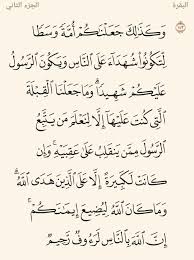 البقرة الجزء الثاني
١٤٣
وَكَذَٰلِكَ جَعَلْنَٰكُمْ أُمَّةً وَسَطًا
لِّتَكُونُوا۟ شُهَدَآءَ عَلَى ٱلنَّاسِ وَيَكُونَ ٱلرَّسُولُ
عَلَيْكُمْ شَهِيدًا ۗ وَمَا جَعَلْنَا ٱلْقِبْلَةَ
ٱلَّتِى كُنتَ عَلَيْهَآ إِلَّا لِنَعْلَمَ مَن يَتَّبِعُ
ٱلرَّسُولَ مِمَّن يَنقَلِبُ عَلَىٰ عَقِبَيْهِ ۚ وَإِن
كَانَتْ لَكَبِيرَةً إِلَّا عَلَى ٱلَّذِينَ هَدَى ٱللَّهُ ۗ
وَمَا كَانَ ٱللَّهُ لِيُضِيعَ إِيمَٰنَكُمْ ۚ
إِنَّ ٱللَّهَ بِٱلنَّاسِ لَرَءُوفٌ رَّحِيمٌ